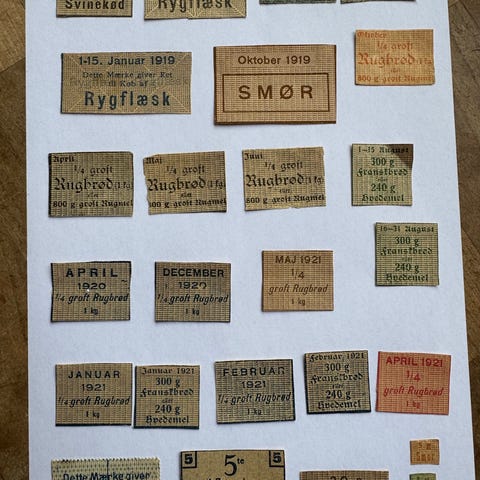 Svinekød
Rygflæsk
1-15. Januar 1919
Dette Mærke giver Ret
til Køb af
Rygflæsk
Oktober 1919
SMØR
Oktober
1/4 groft
Rugbrød (1 kg)
eller
800 g groft Rugmel
April
1/4 groft
Rugbrød (1 kg)
eller
800 g groft Rugmel
Maj
1/4 groft
Rugbrød (1 kg)
eller
800 g groft Rugmel
Juni
1/4 groft
Rugbrød (1 kg)
eller
800 g groft Rugmel
1-15 August
300 g
Franskbrød
eller
240 g
Hvedemel
16-31 August
300 g
Franskbrød
eller
240 g
Hvedemel
APRIL
1920
1/4 groft Rugbrød
1 kg
DECEMBER
1920
1/4 groft Rugbrød
1 kg
MAJ 1921
1/4
groft Rugbrød
1 kg
JANUAR
1921
1/4 groft Rugbrød
1 kg
Januar 1921
300 g
Franskbrød
eller
240 g
Hvedemel
FEBRUAR
1921
1/4 groft Rugbrød
1 kg
Februar 1921
300 g
Franskbrød
eller
240 g
Hvedemel
APRIL 1921
1/4
groft Rugbrød
1 kg
Smør
Dette Mærke giver
5 5te 5